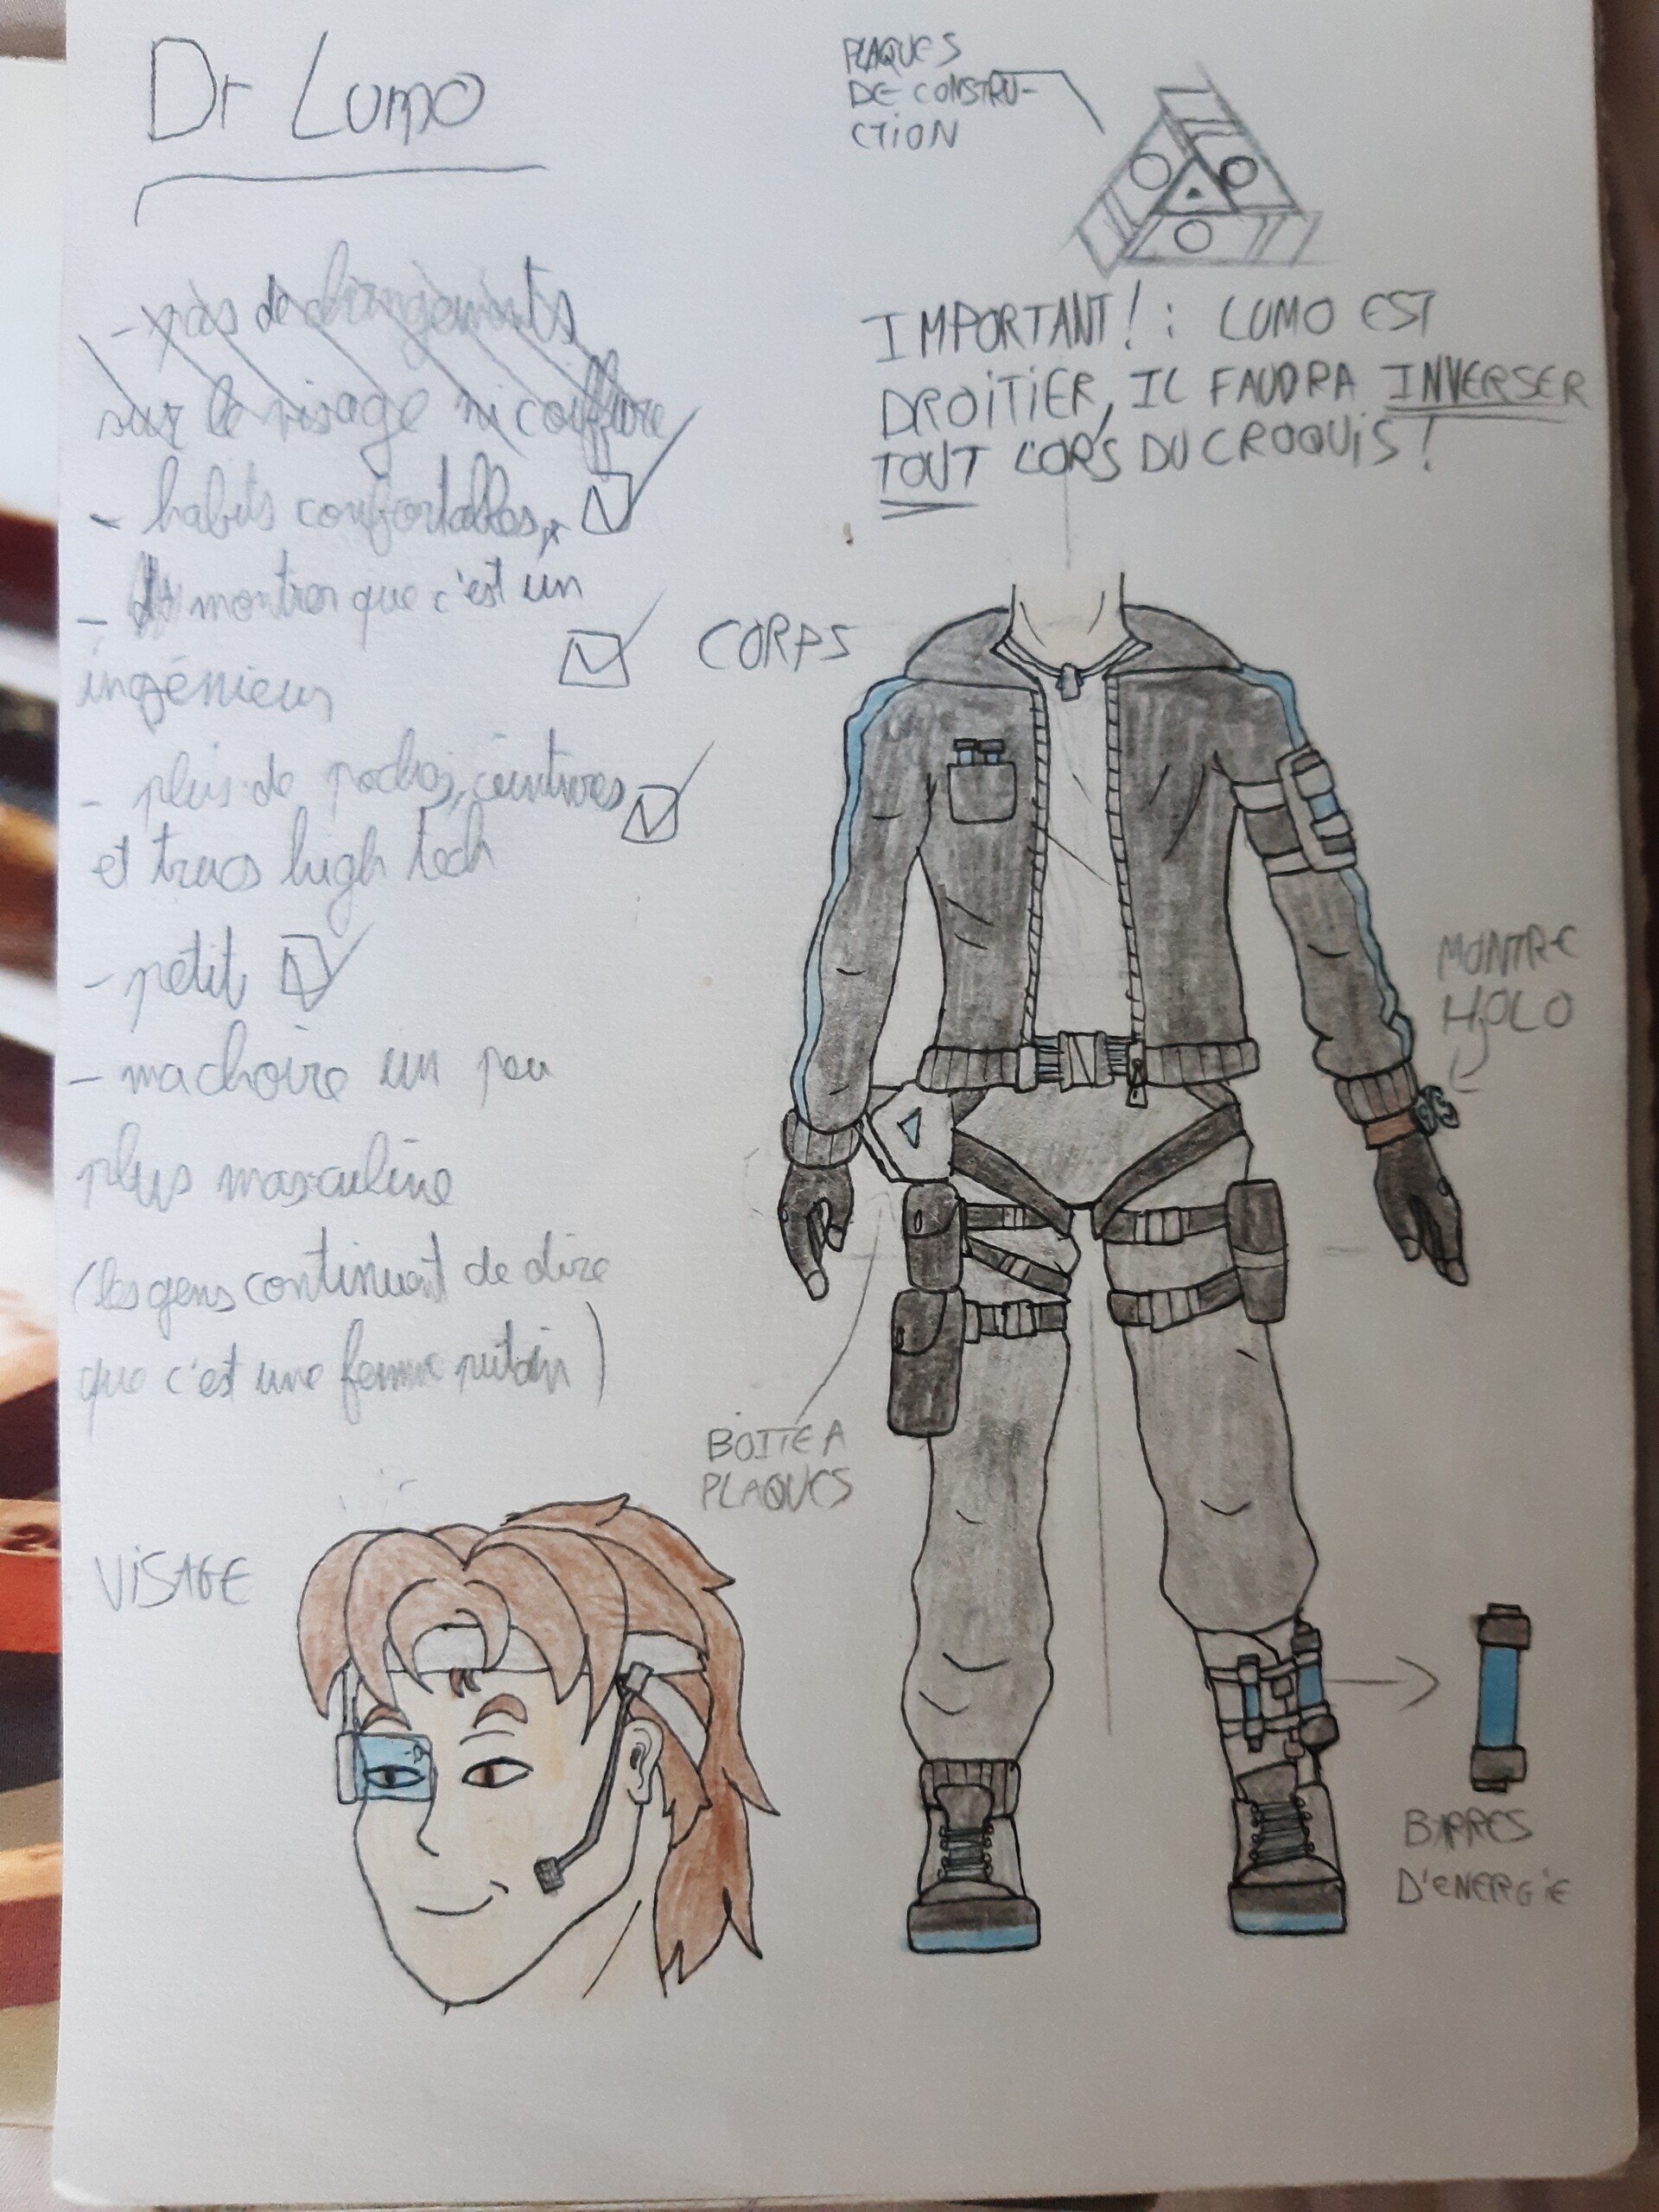 Dr Lumo
- pas de changements
sur le visage ni coiffure
- habits confortables
- montrer que c'est un
ingénieur
- plus de poches, ceintures
et trucs high tech
- petit
- machoire un peu
plus masculine
(les gens continuent de dire
que c'est une femme putain)
VISAGE
PLAQUES
DE CONSTRU-
CTION
IMPORTANT! : LUMO EST
DROITIER, IL FAUDRA INVERSER
TOUT LORS DU CROQUIS !
CORPS
MONTRE
HOLO
BOITE A
PLAQUES
BARRES
D'ENERGIE